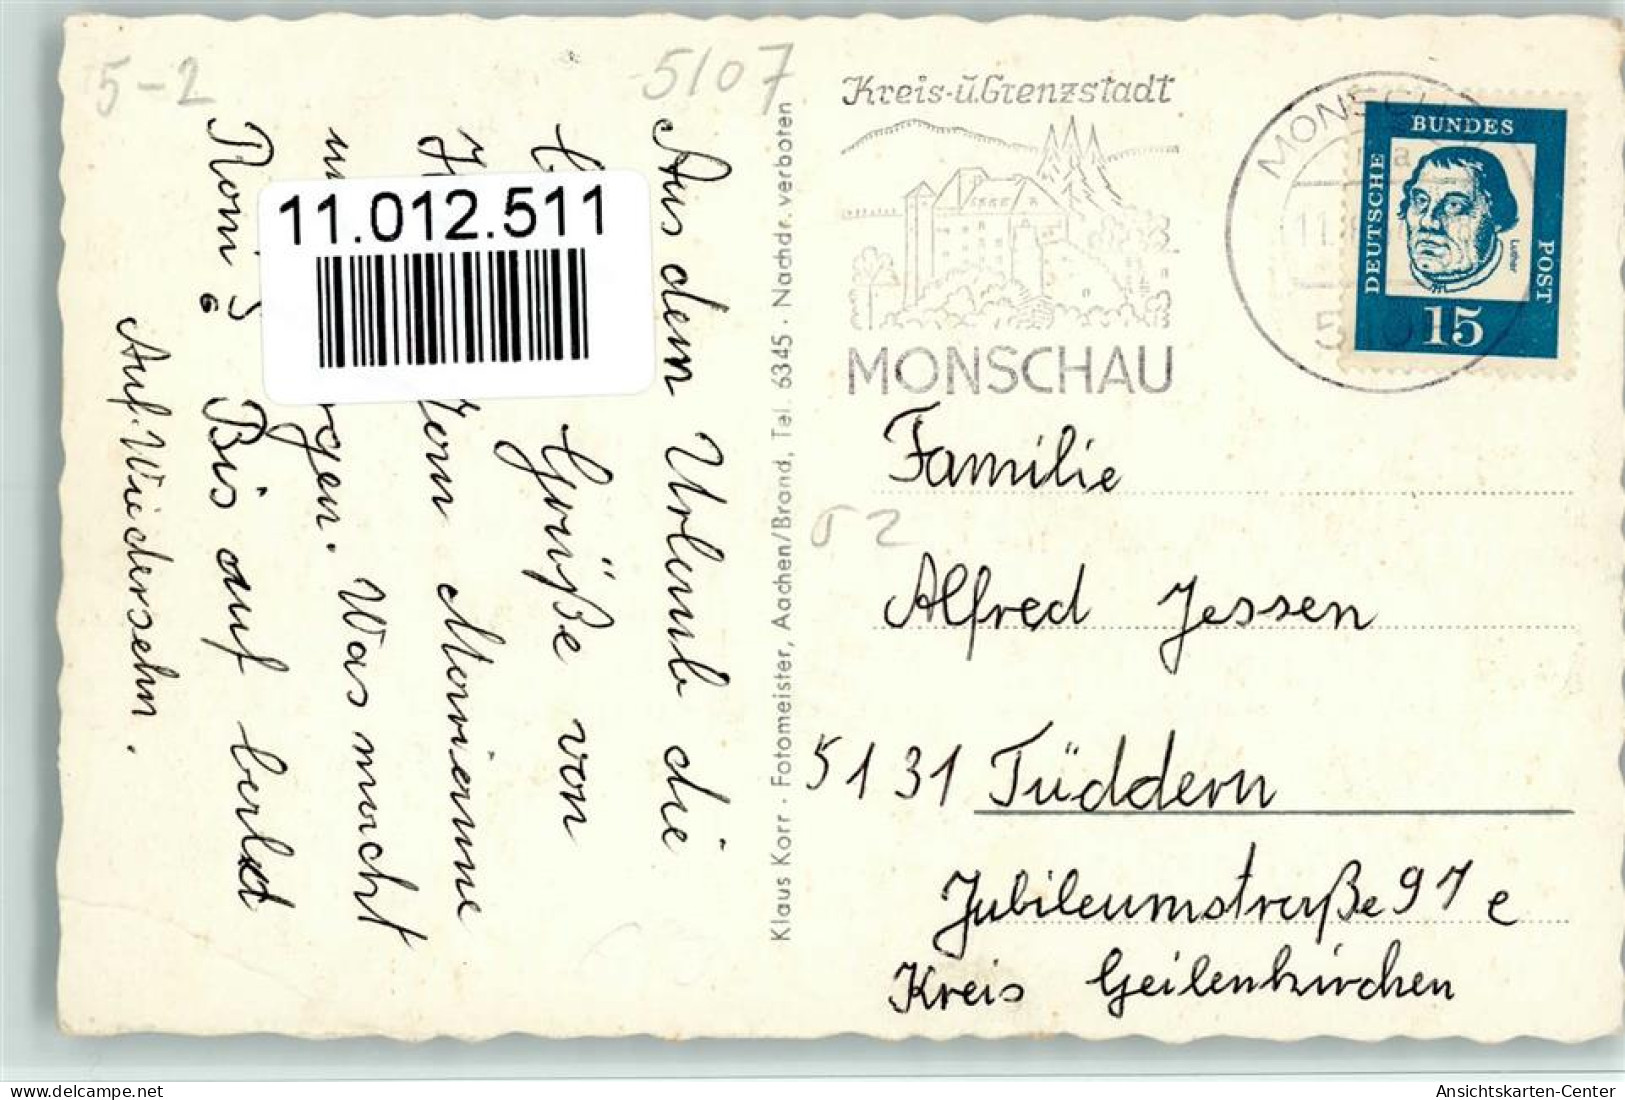 5-2
5107
Aus dem Urlaub die
Grüße von
Marianne
Was macht
Bis auf bald
Auf Wiedersehn.
11.012.511
Klaus Korr · Fotomeister, Aachen/Brand, Tel. 6345 · Nachdr. verboten
Kreis-u.Grenzstadt
MONSCHAU
DEUTSCHE
BUNDES
POST
Luther
15
Familie
Alfred Jessen
5131 Tüddern
Jubileumstraße 97 e
Kreis Geilenkirchen
www.delcampe.net
Ansichtskarten-Center